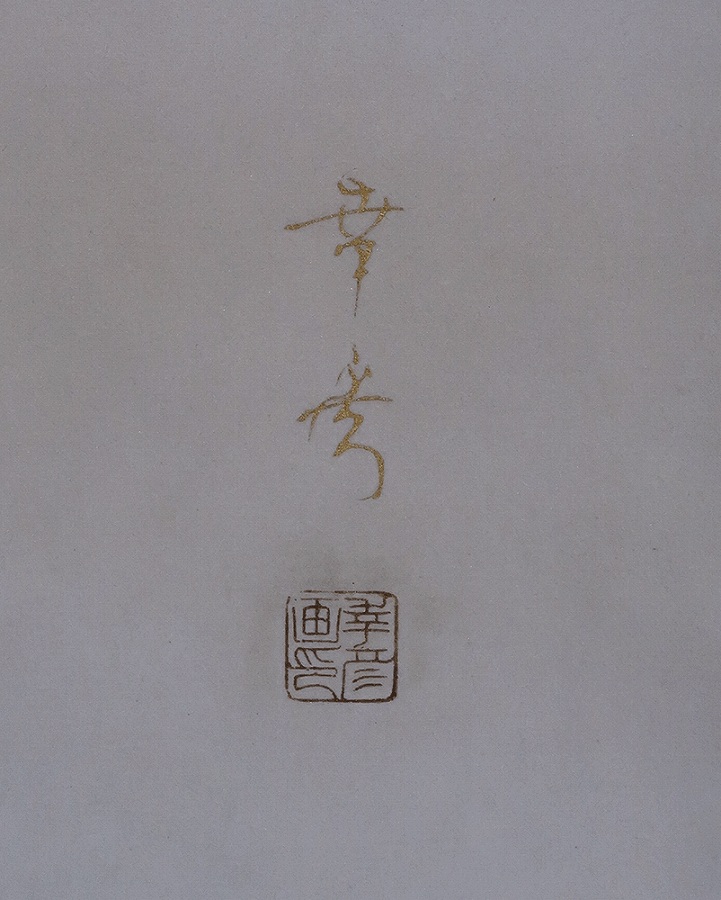 幸彦
幸彦
画印